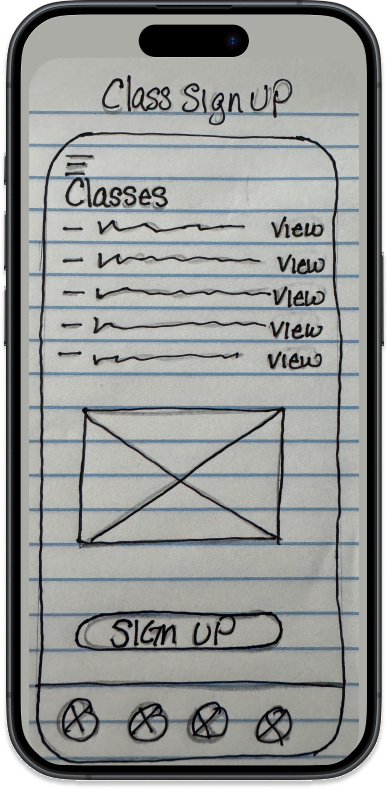 Class Sign UP
Classes
View
View
View
View
View
SIGN UP